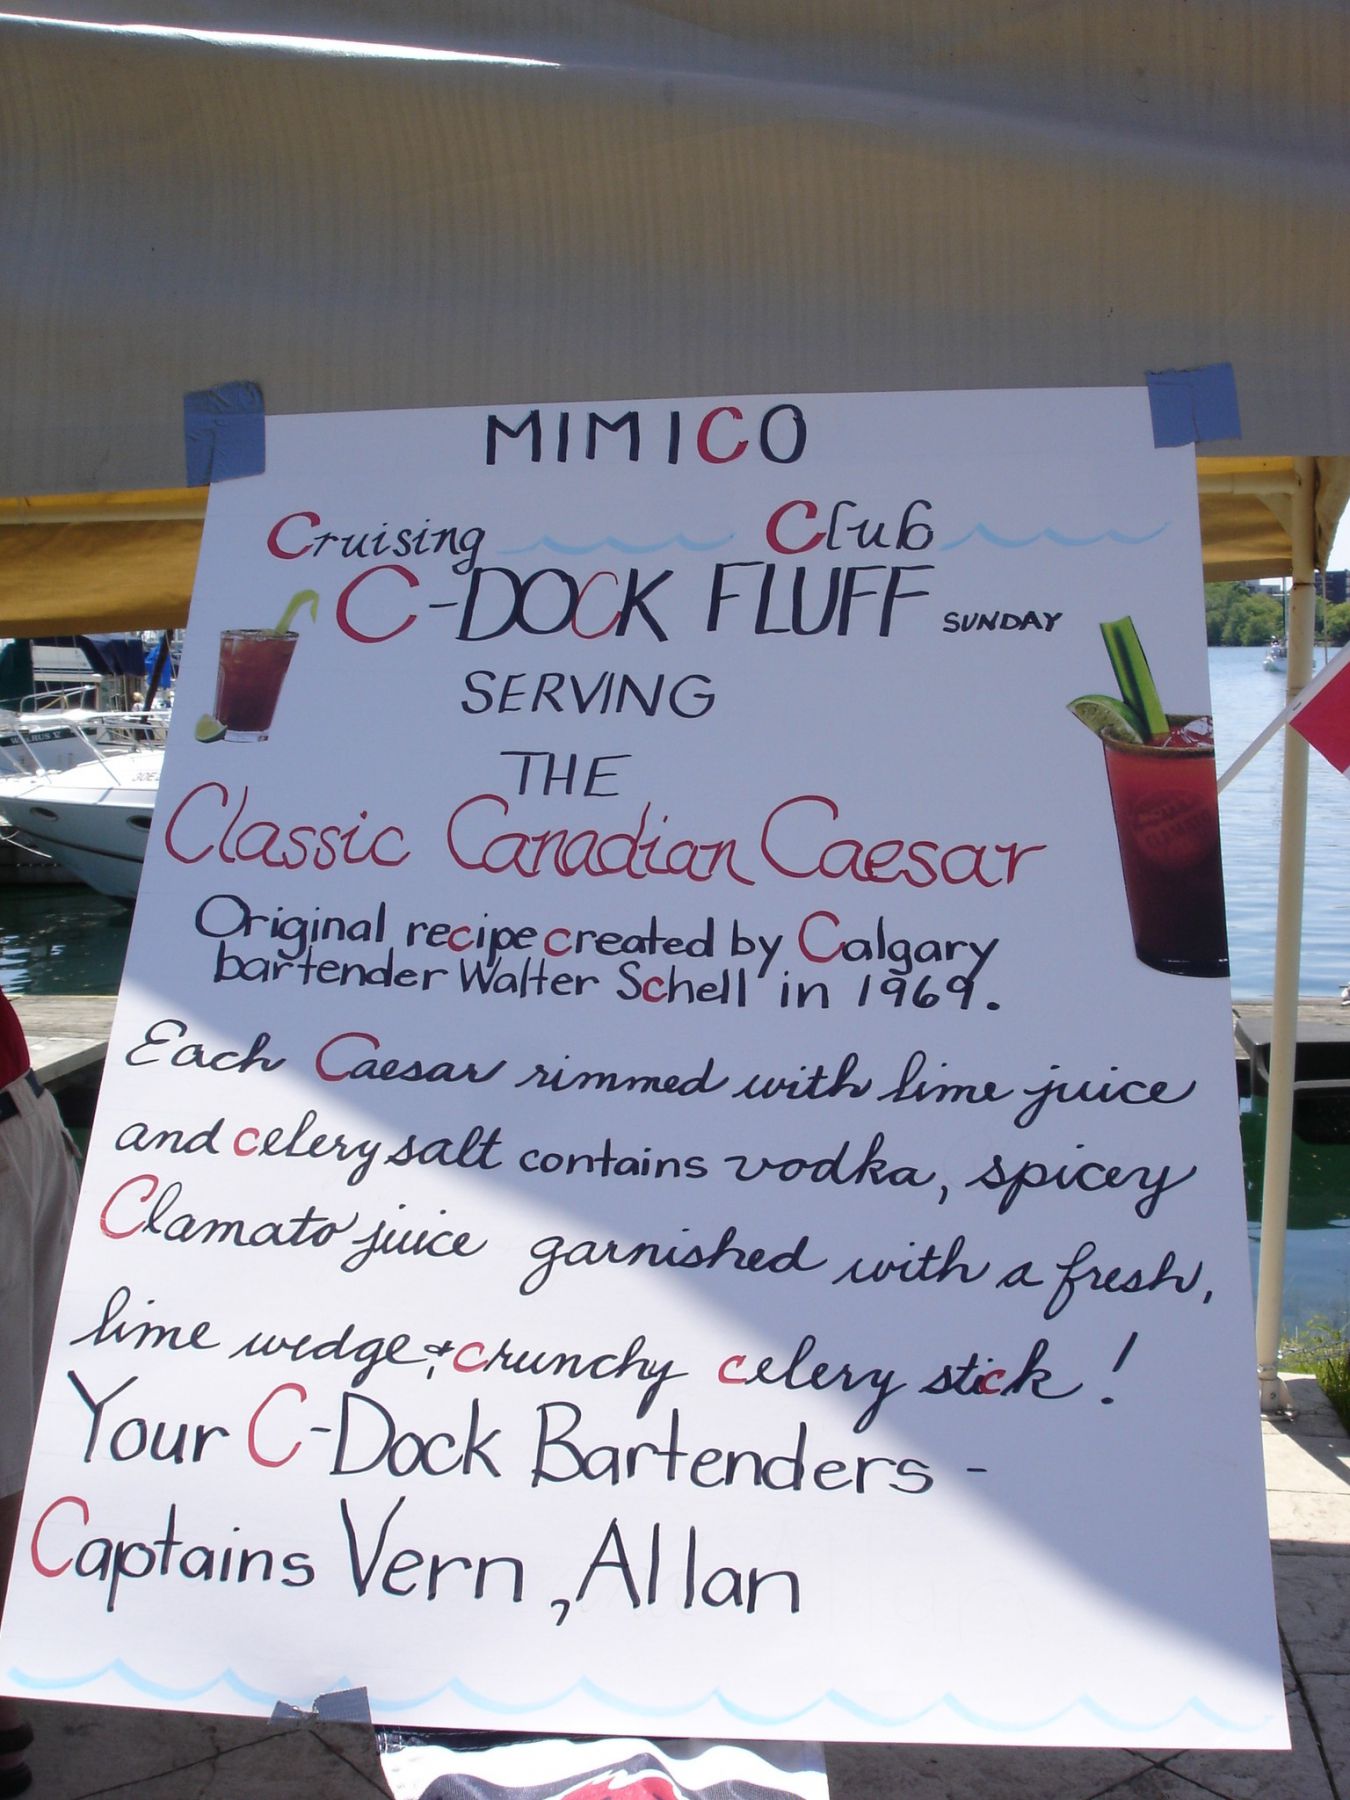 MIMICO
Cruising Club
C-DOCK FLUFF SUNDAY
SERVING
THE
Classic Canadian Caesar
Original recipe created by Calgary
bartender Walter Schell in 1969.
Each Caesar rimmed with lime juice
and celery salt contains vodka, spicey
Clamato juice garnished with a fresh,
lime wedge & crunchy celery stick!
Your C-Dock Bartenders -
Captains Vern, Allan